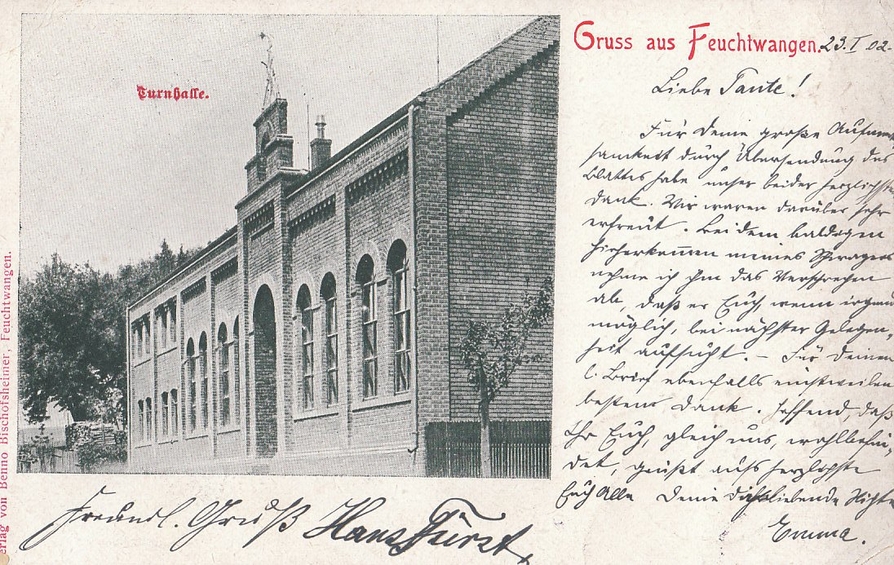 Gruss aus Feuchtwangen. 23. I 02.
Turnhalle.
Liebe Tante!
Für Deine große Aufmerk-
samkeit durch Übersendung des
Blattes habe unser beider herzlichsten
Dank. Wir waren darüber sehr
erfreut. Bei dem baldigen
Hieherkommen meines
nehme ich ihm das Versprechen
ab, daß er Euch, wenn irgend
möglich, bei nächster Gelegen-
heit aufsucht. – Für Deinen
l. Brief ebenfalls einstweilen
besten Dank. Hoffend, daß
Ihr Euch, gleich uns, wohlbefin-
det, grüßt aufs herzlichste
Euch Alle Deine Dichliebende Nichte
Emma.
Freundl. Gruß Hans Fürst,
erlag von Benno Bischofsheimer, Feuchtwangen.